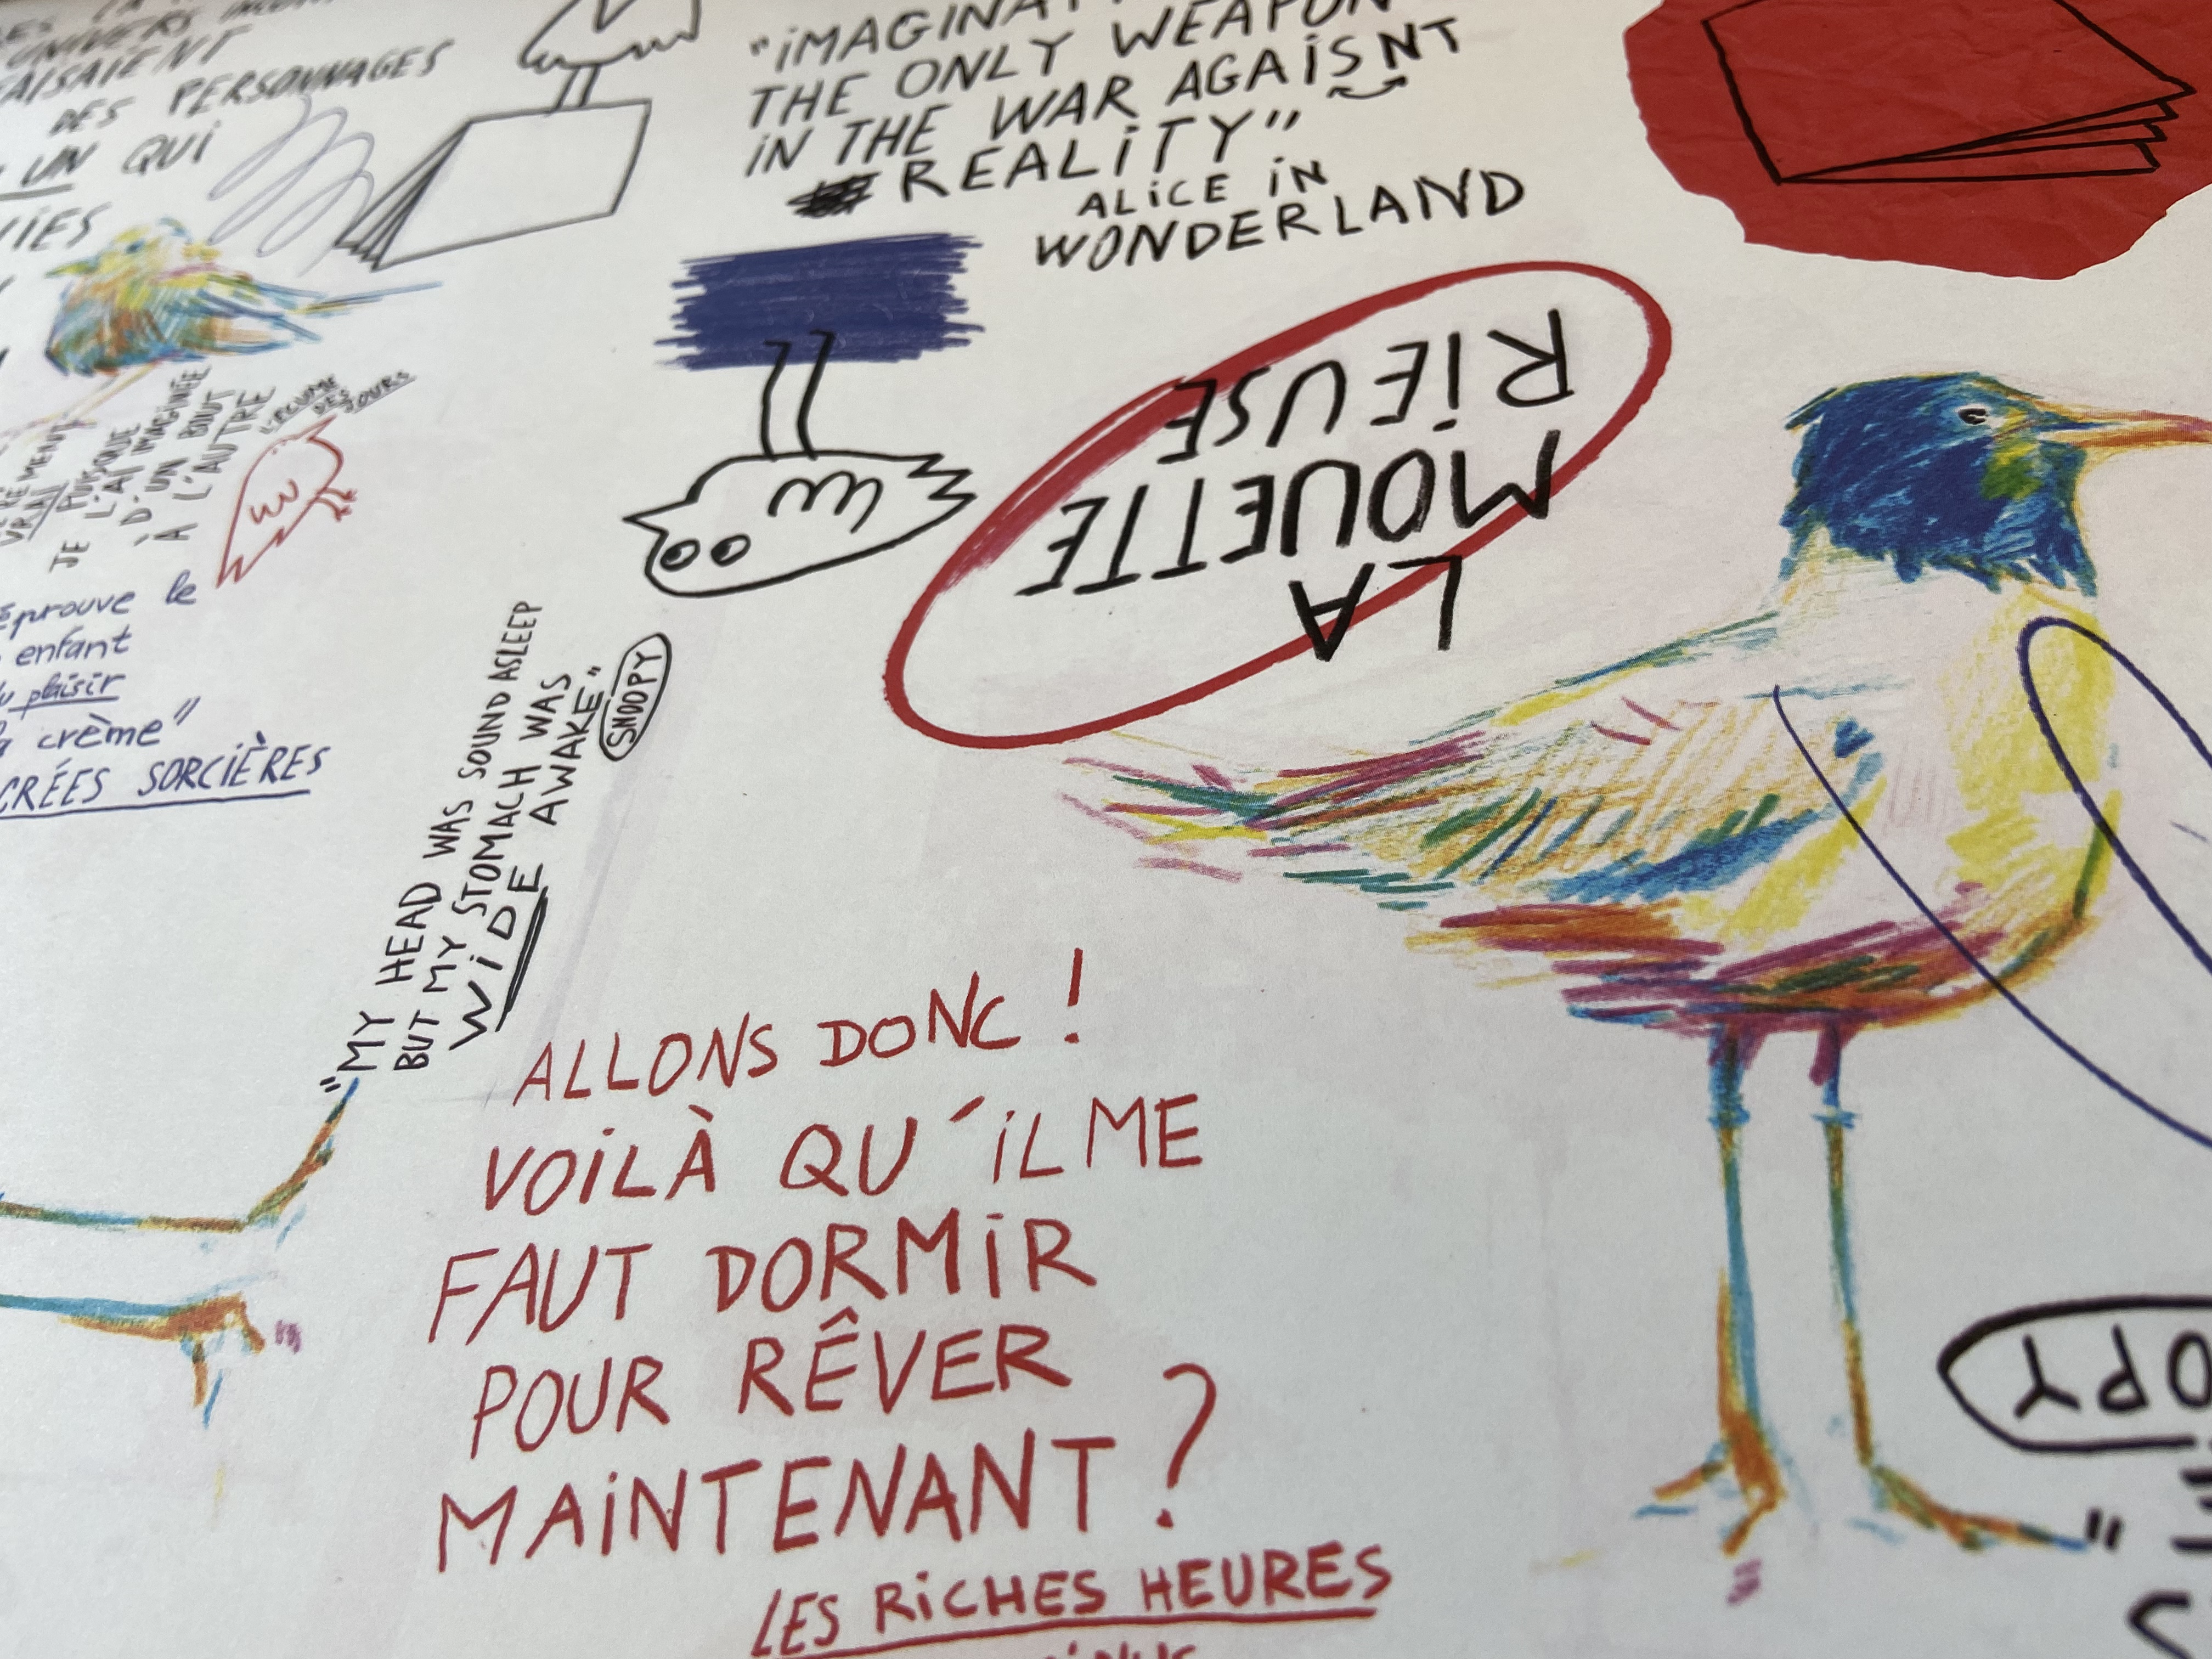 UNIVERS
DES PERSONNAGES
UN QUI
"IMAGINAT
THE ONLY WEAPON
IN THE WAR AGAISNT
REALITY"
ALICE IN
WONDERLAND
LA
MOUETTE
RIEUSE
VRAI
JE PUISQUE
L'AI IMAGINÉE
D'UN BOUT
À L'AUTRE
"L'ÉCUME
DES
JOURS
éprouve le
enfant
plaisir
crème"
SORCIÈRES
"MY HEAD WAS SOUND ASLEEP
BUT MY STOMACH WAS
WIDE AWAKE"
SNOOPY
ALLONS DONC !
VOILÀ QU'IL ME
FAUT DORMIR
POUR RÊVER
MAINTENANT ?
LES RICHES HEURES
OPY